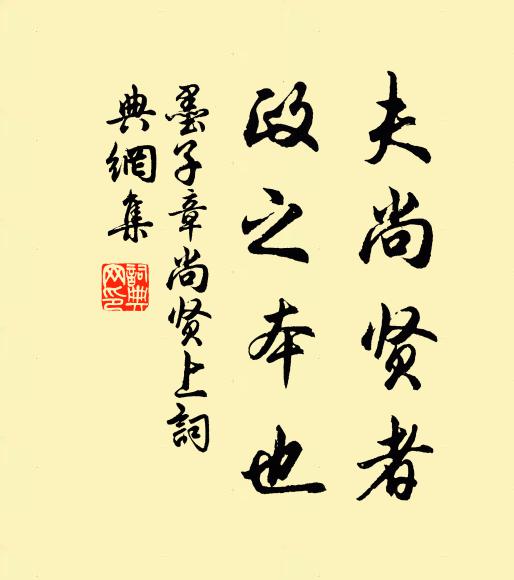 夫尚贤者
政之本也
墨子章尚贤上詞
典網集
詞典网印